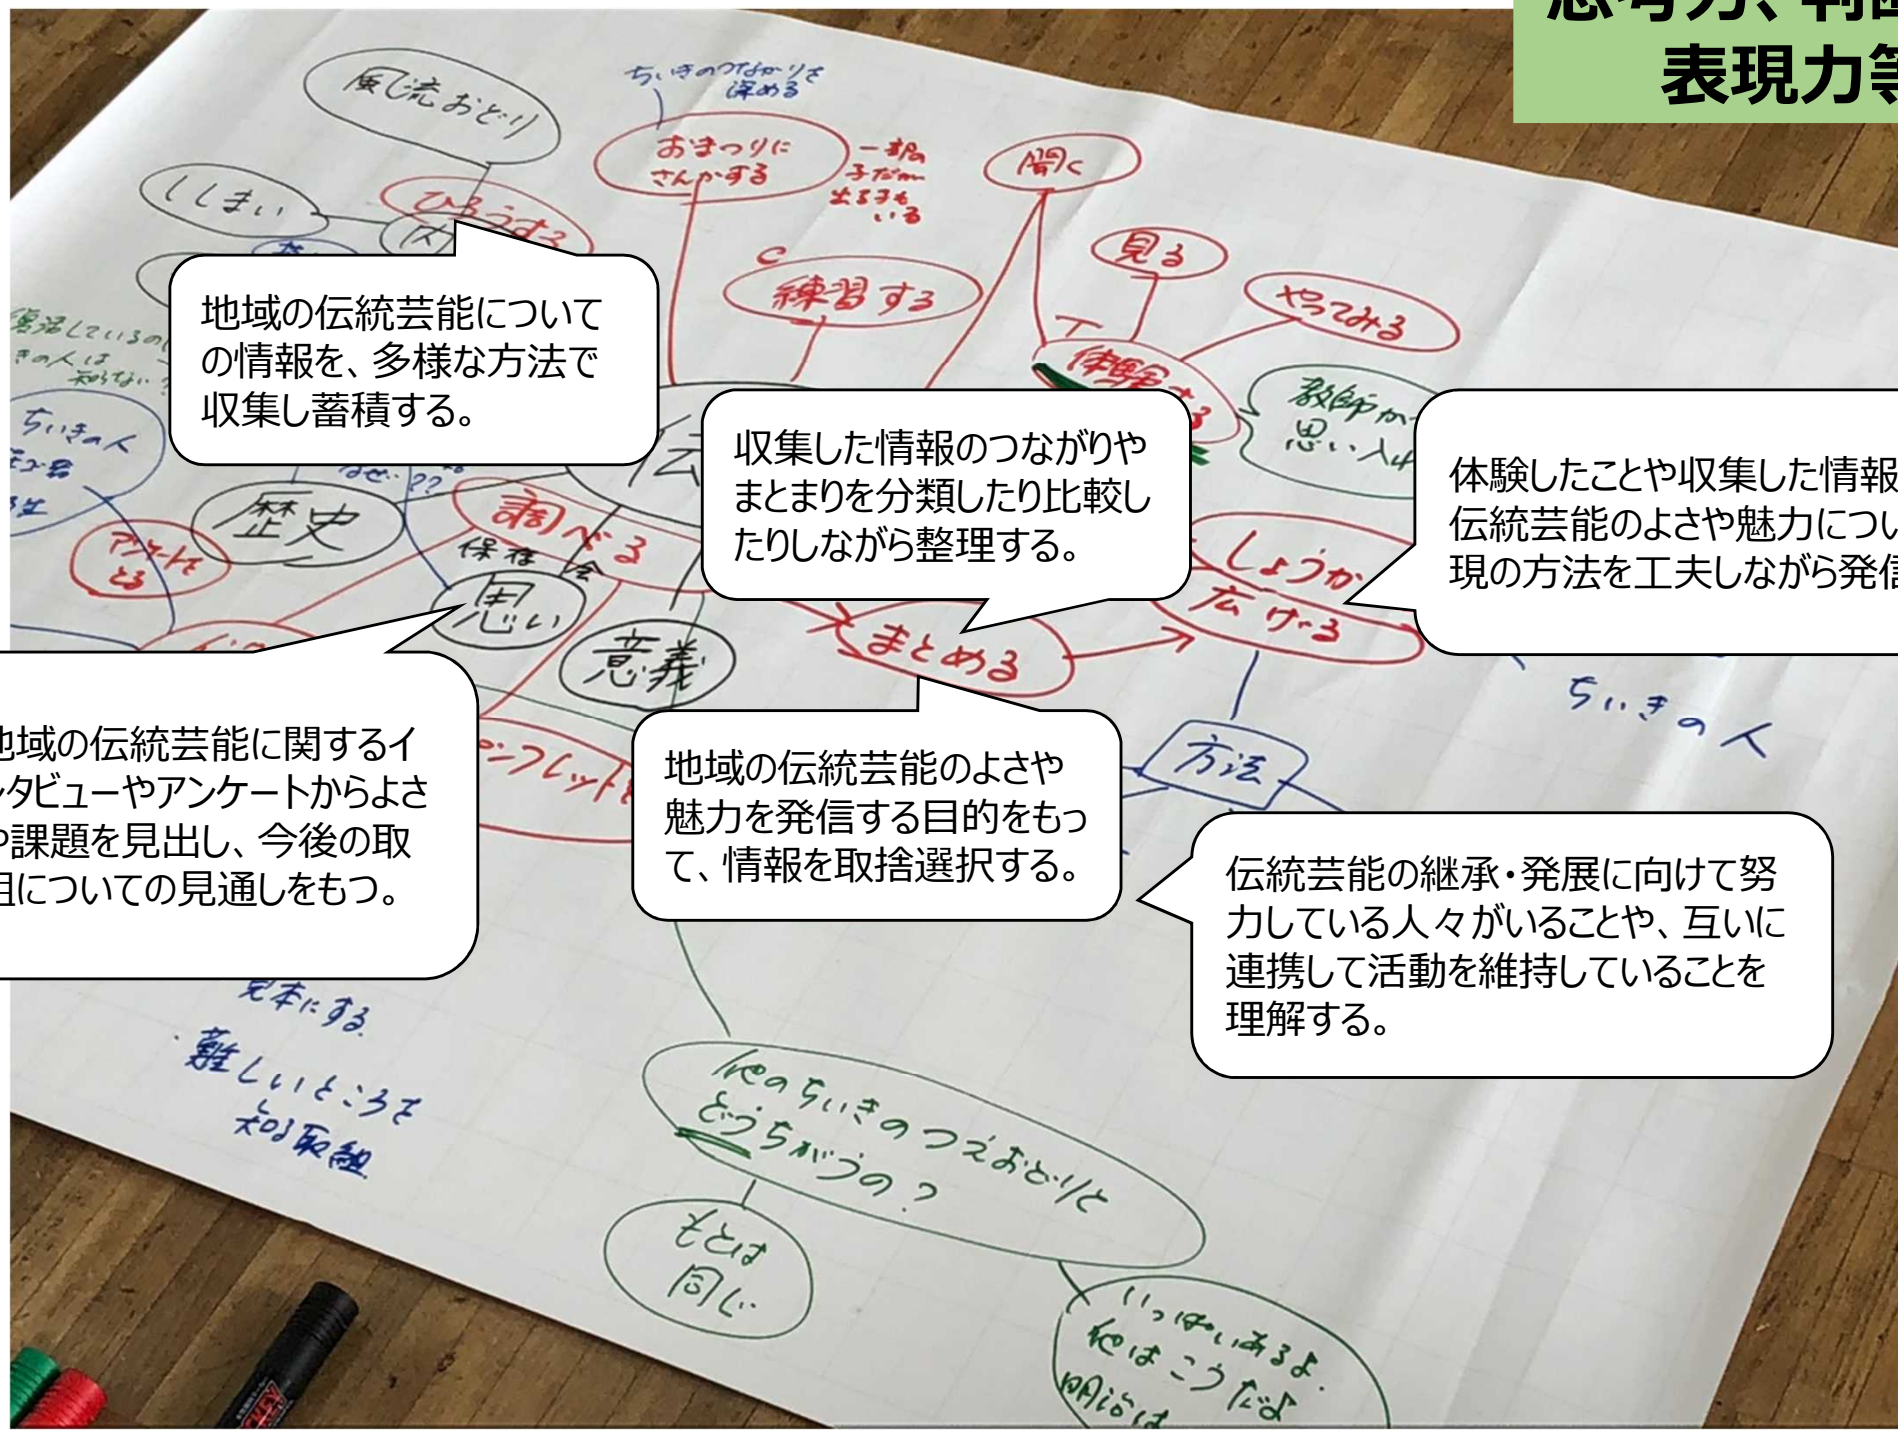 思考力、判断
表現力等
風流おどり
ちいきのつながりを
深める
おまつりに
さんかする
一部の
子だが
出る子も
いる
聞く
ししまい
ひろうする
見る
練習する
やってみる
体験する
教師が
思い入れ
地域の伝統芸能について
の情報を、多様な方法で
収集し蓄積する。
復活しているの
きの人は
知らない?
ちいきの人
なぜ??
歴史
調べる
保存会
思い
意義
アンケートを
とる
収集した情報のつながりや
まとまりを分類したり比較し
たりしながら整理する。
体験したことや収集した情報
伝統芸能のよさや魅力につい
現の方法を工夫しながら発信
しょうか
広げる
まとめる
ちいきの人
方法
地域の伝統芸能に関するイ
ンタビューやアンケートからよさ
や課題を見出し、今後の取
組についての見通しをもつ。
パンフレットを
地域の伝統芸能のよさや
魅力を発信する目的をもっ
て、情報を取捨選択する。
伝統芸能の継承・発展に向けて努
力している人々がいることや、互いに
連携して活動を維持していることを
理解する。
見本にする
難しいところを
知る取組
他のちいきのつえおどりと
どうちがうの?
もとは
同じ
いっぱいあるよ.
他はこうだよ
明治は